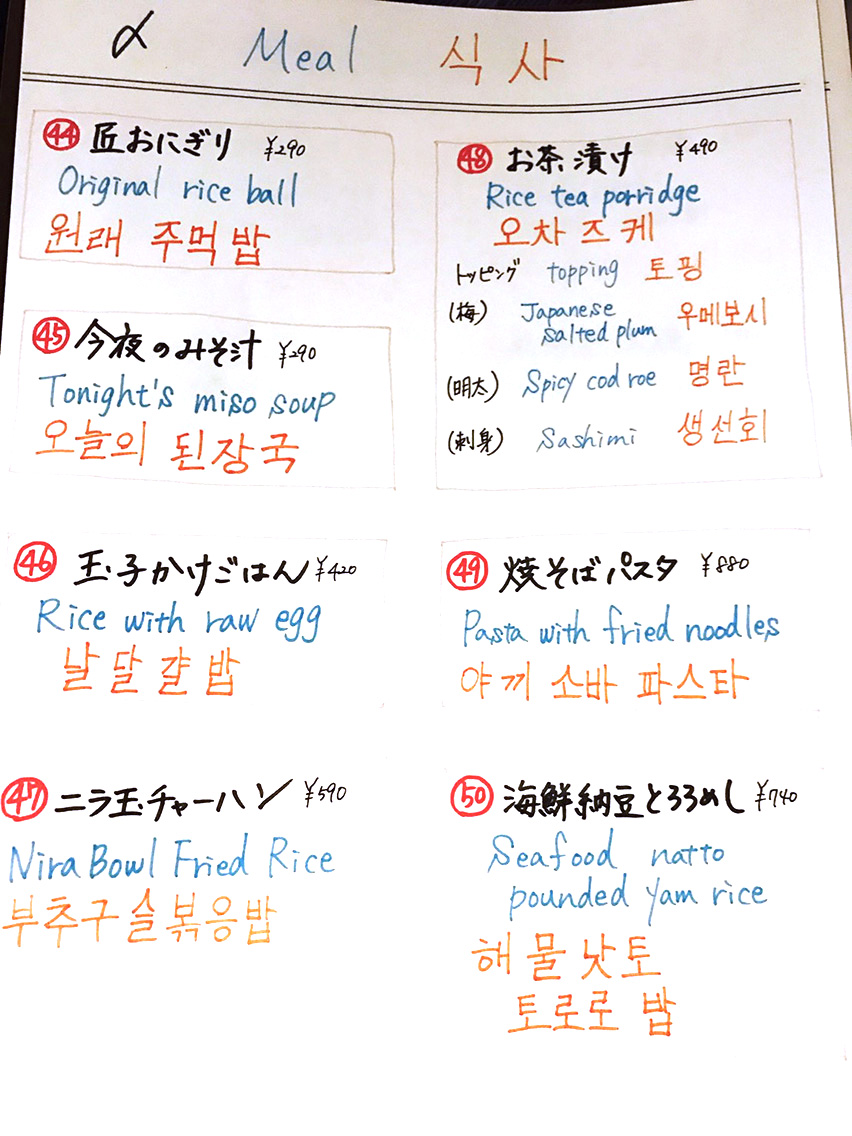 〆 Meal 식사
㊹ 匠おにぎり ¥290
Original rice ball
원래 주먹밥
㊺ 今夜のみそ汁 ¥290
Tonight's miso soup
오늘의 된장국
㊻ 玉子かけごはん ¥420
Rice with raw egg
날달걀밥
㊼ ニラ玉チャーハン ¥590
Nira Bowl Fried Rice
부추구슬볶응밥
㊽ お茶漬け ¥490
Rice tea porridge
오차즈케
トッピング topping 토핑
(梅) Japanese salted plum 우메보시
(明太) Spicy cod roe 명란
(刺身) Sashimi 생선회
㊾ 焼そばパスタ ¥880
Pasta with fried noodles
야끼소바 파스타
㊿ 海鮮納豆とろろめし ¥740
Seafood natto
pounded yam rice
해물낫토
토로로 밥